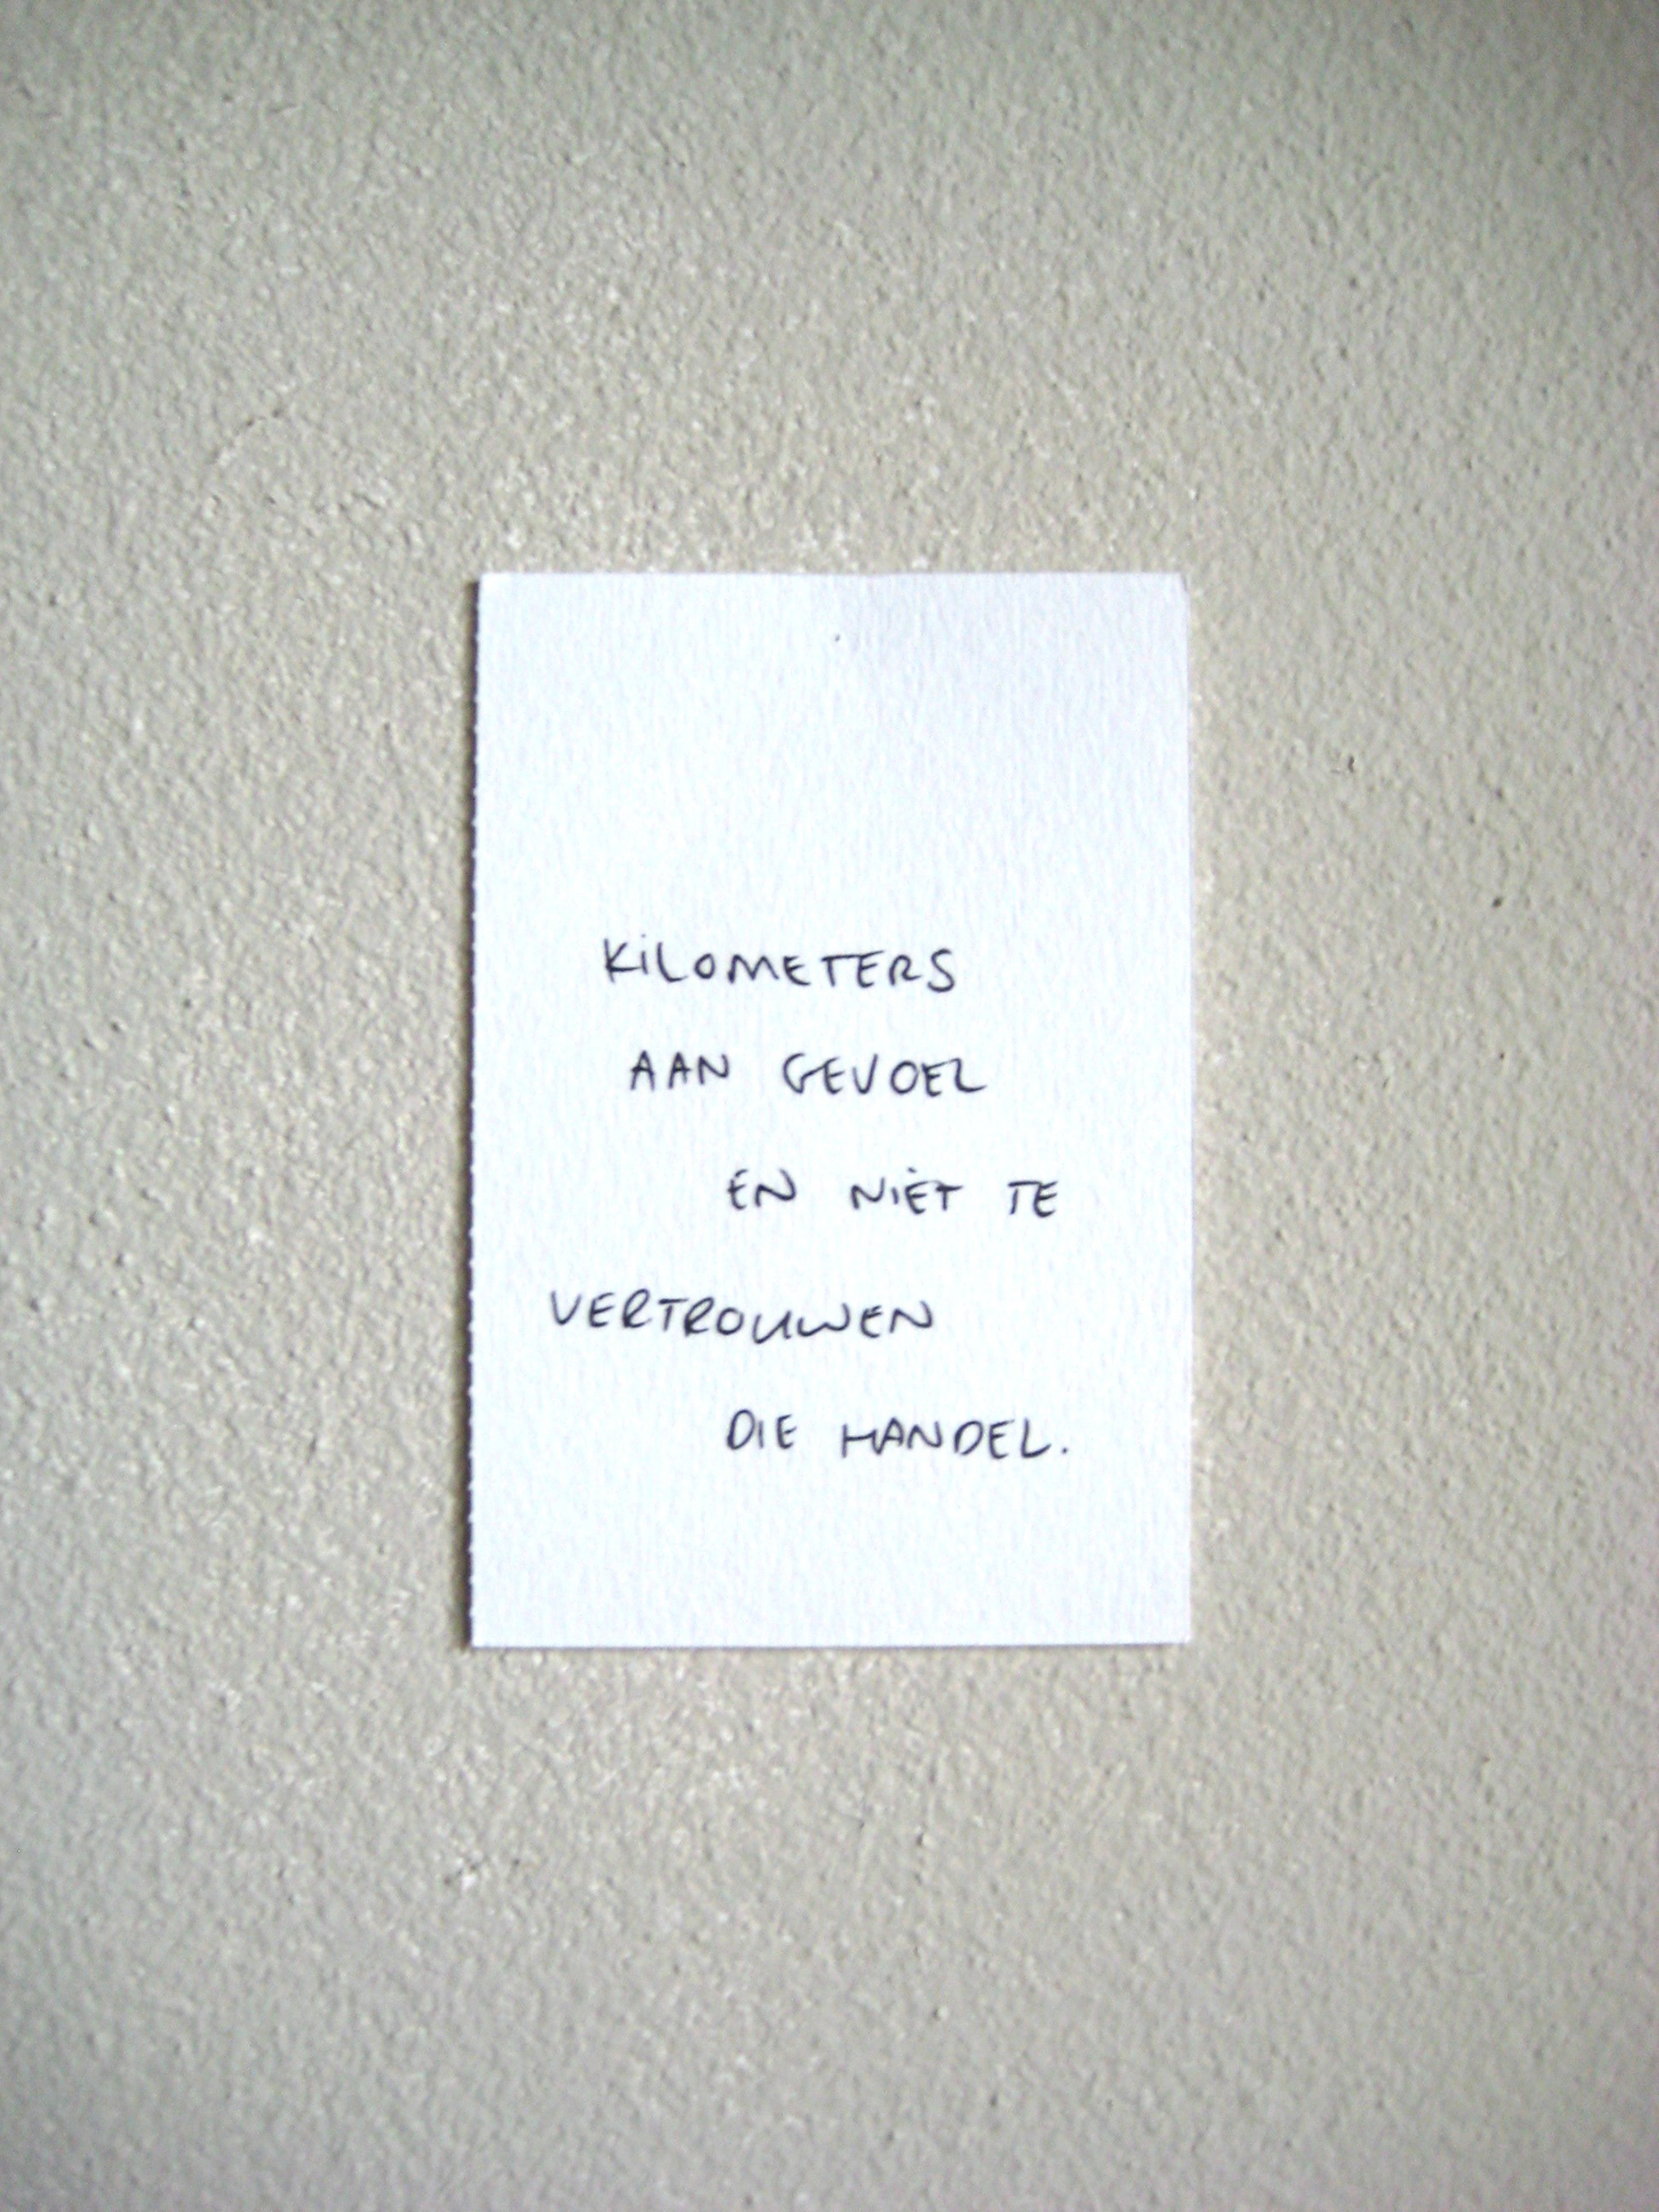 KILOMETERS
AAN GEVOEL
EN NIET TE
VERTROUWEN
DIE HANDEL.